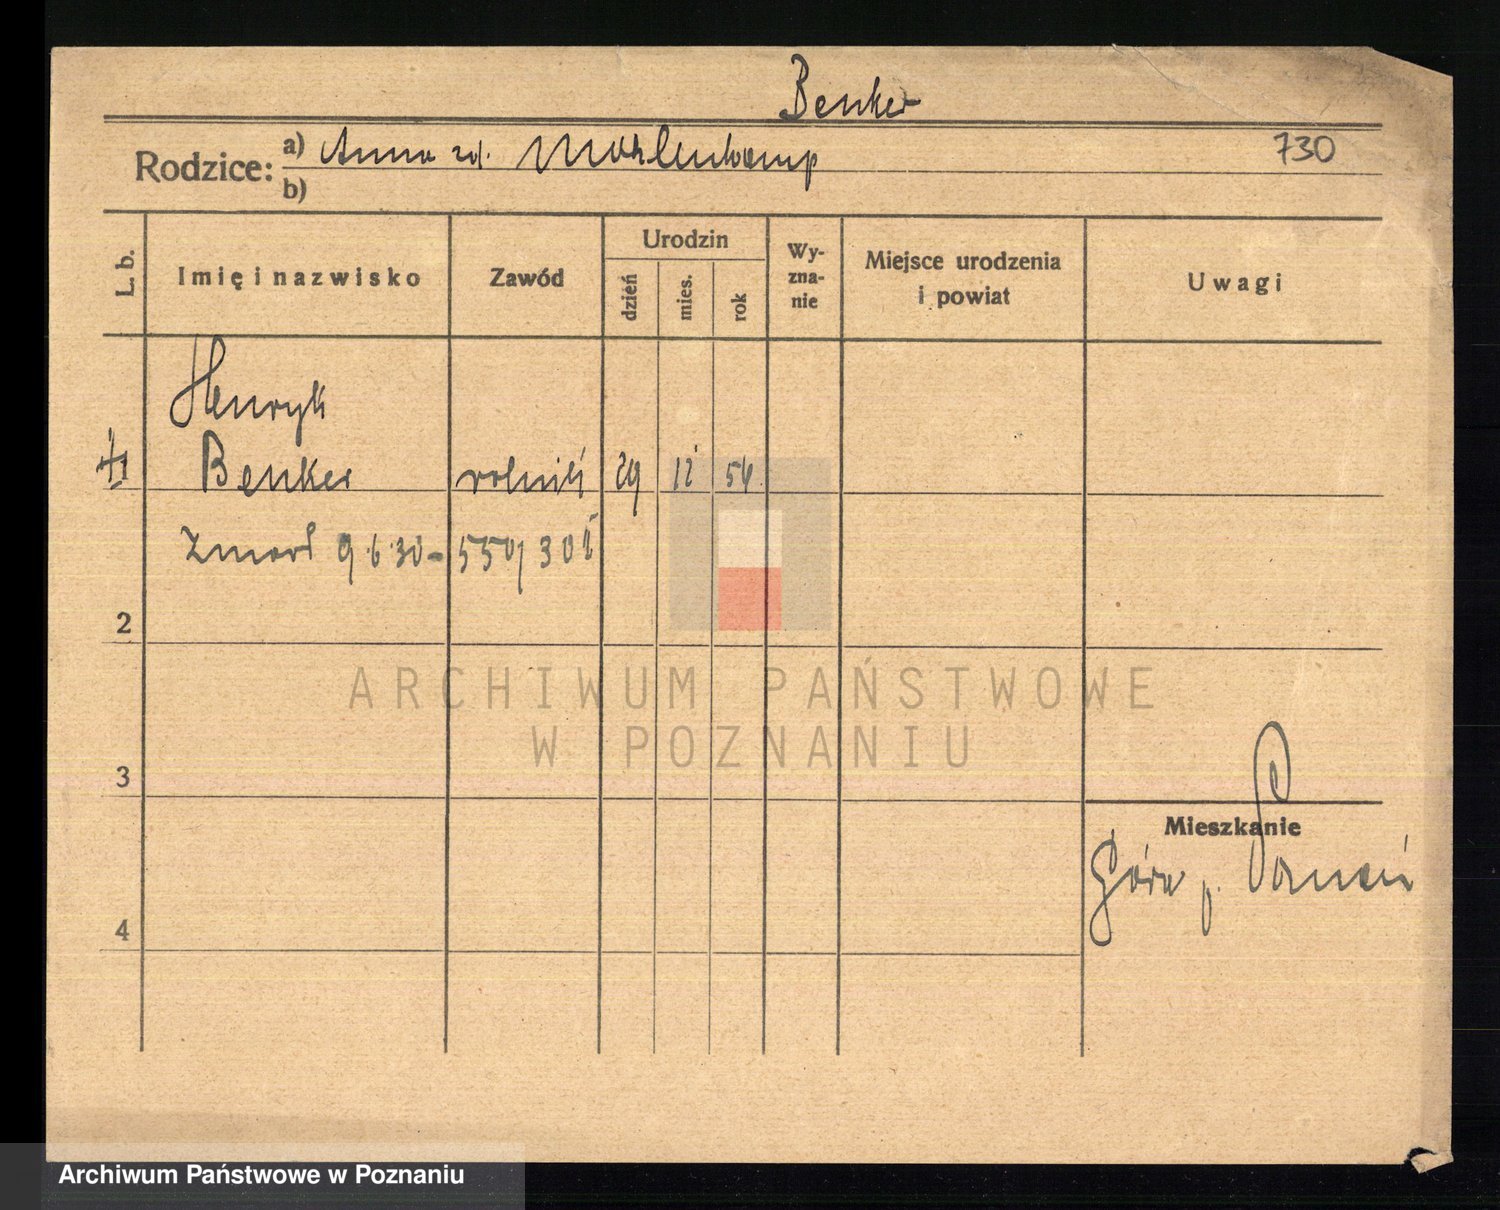 Benker
Rodzice: a) Anna
b)
730
L. b.
Imię i nazwisko
Zawód
Urodzin
dzień
mies.
rok
Wy-
zna-
nie
Miejsce urodzenia
i powiat
Uwagi
Henryk
1 Benker rolnik 29 12 54
zmarł 9.6.30 - 550/30
2
ARCHIWUM PAŃSTWOWE
W POZNANIU
3
Mieszkanie
Góra p.
4
Archiwum Państwowe w Poznaniu